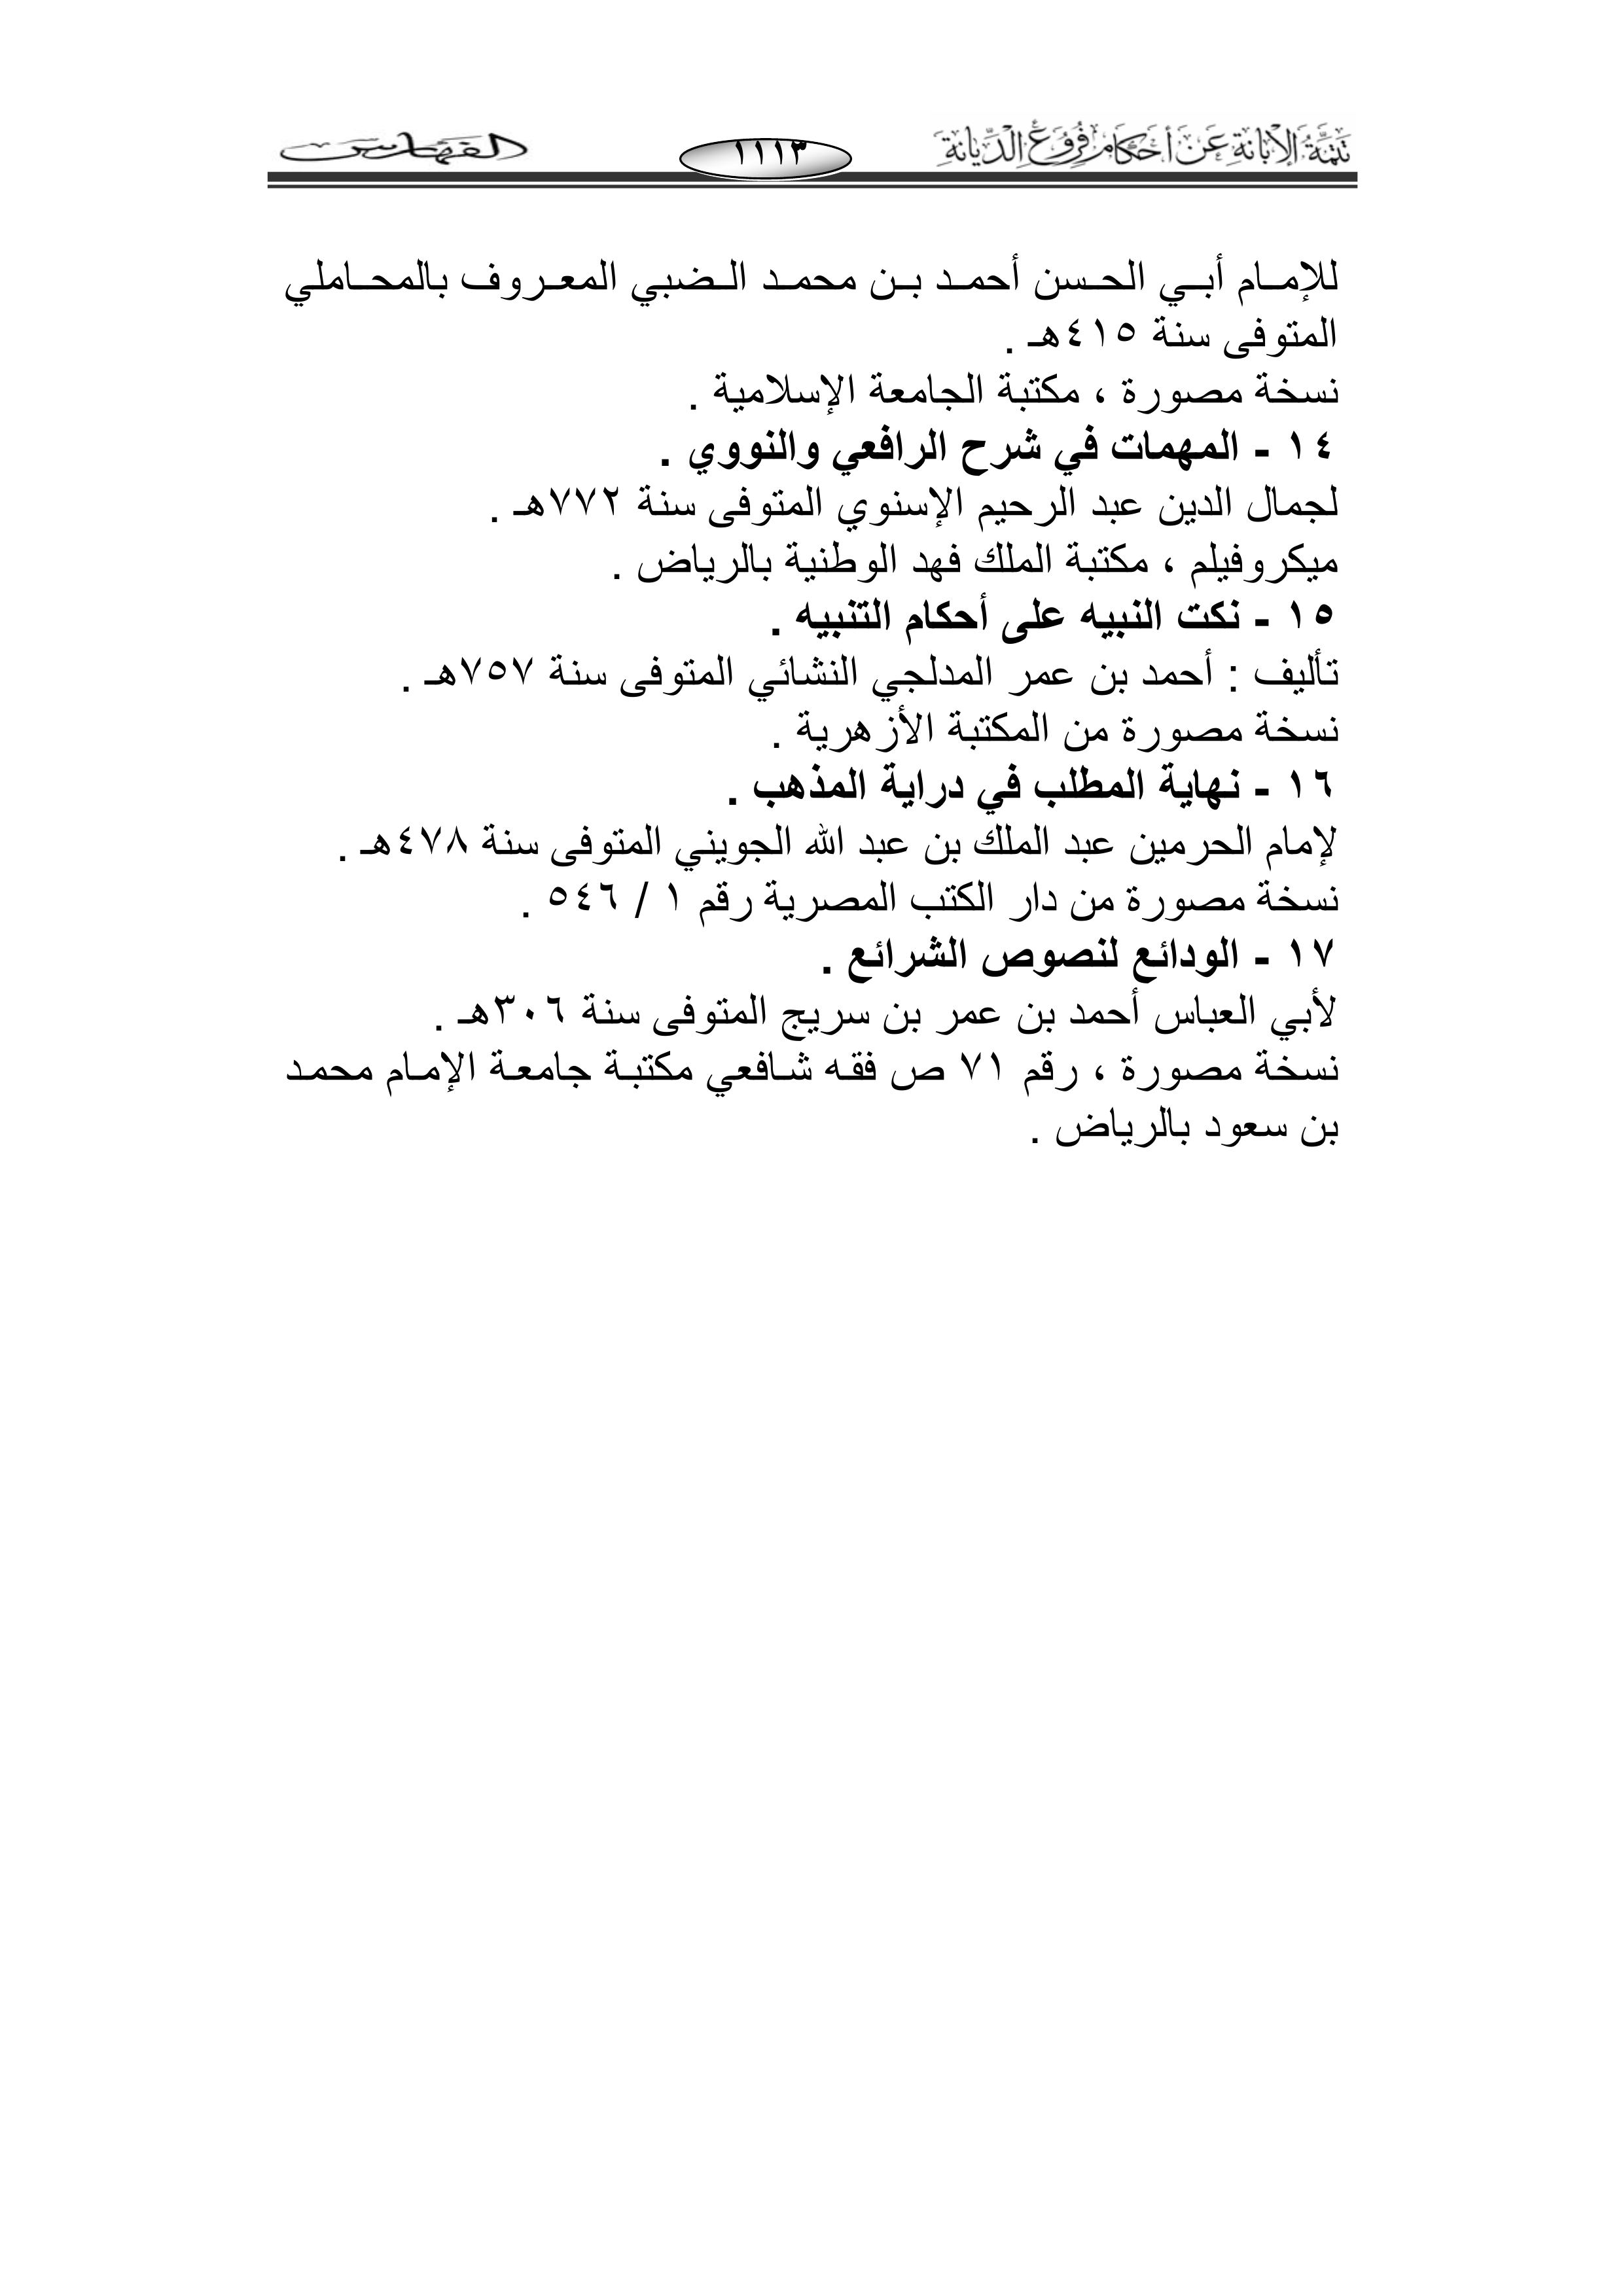 تَتِمَّةُ الإِبَانَةِ عَنْ أَحْكَامِ فُرُوعِ الدِّيَانَةِ
١١١٣
الفهارس
للإمام أبي الحسن أحمد بن محمد الضبي المعروف بالمحاملي
المتوفى سنة ٤١٥هـ .
نسخة مصورة ، مكتبة الجامعة الإسلامية .
١٤ - المهمات في شرح الرافعي والنووي .
لجمال الدين عبد الرحيم الإسنوي المتوفى سنة ٧٧٢هـ .
ميكروفيلم ، مكتبة الملك فهد الوطنية بالرياض .
١٥ - نكت النبيه على أحكام التنبيه .
تأليف : أحمد بن عمر المدلجي النشائي المتوفى سنة ٧٥٧هـ .
نسخة مصورة من المكتبة الأزهرية .
١٦ - نهاية المطلب في دراية المذهب .
لإمام الحرمين عبد الملك بن عبد الله الجويني المتوفى سنة ٤٧٨هـ .
نسخة مصورة من دار الكتب المصرية رقم ١ / ٥٤٦ .
١٧ - الودائع لنصوص الشرائع .
لأبي العباس أحمد بن عمر بن سريج المتوفى سنة ٣٠٦هـ .
نسخة مصورة ، رقم ٧١ ص فقه شافعي مكتبة جامعة الإمام محمد
بن سعود بالرياض .